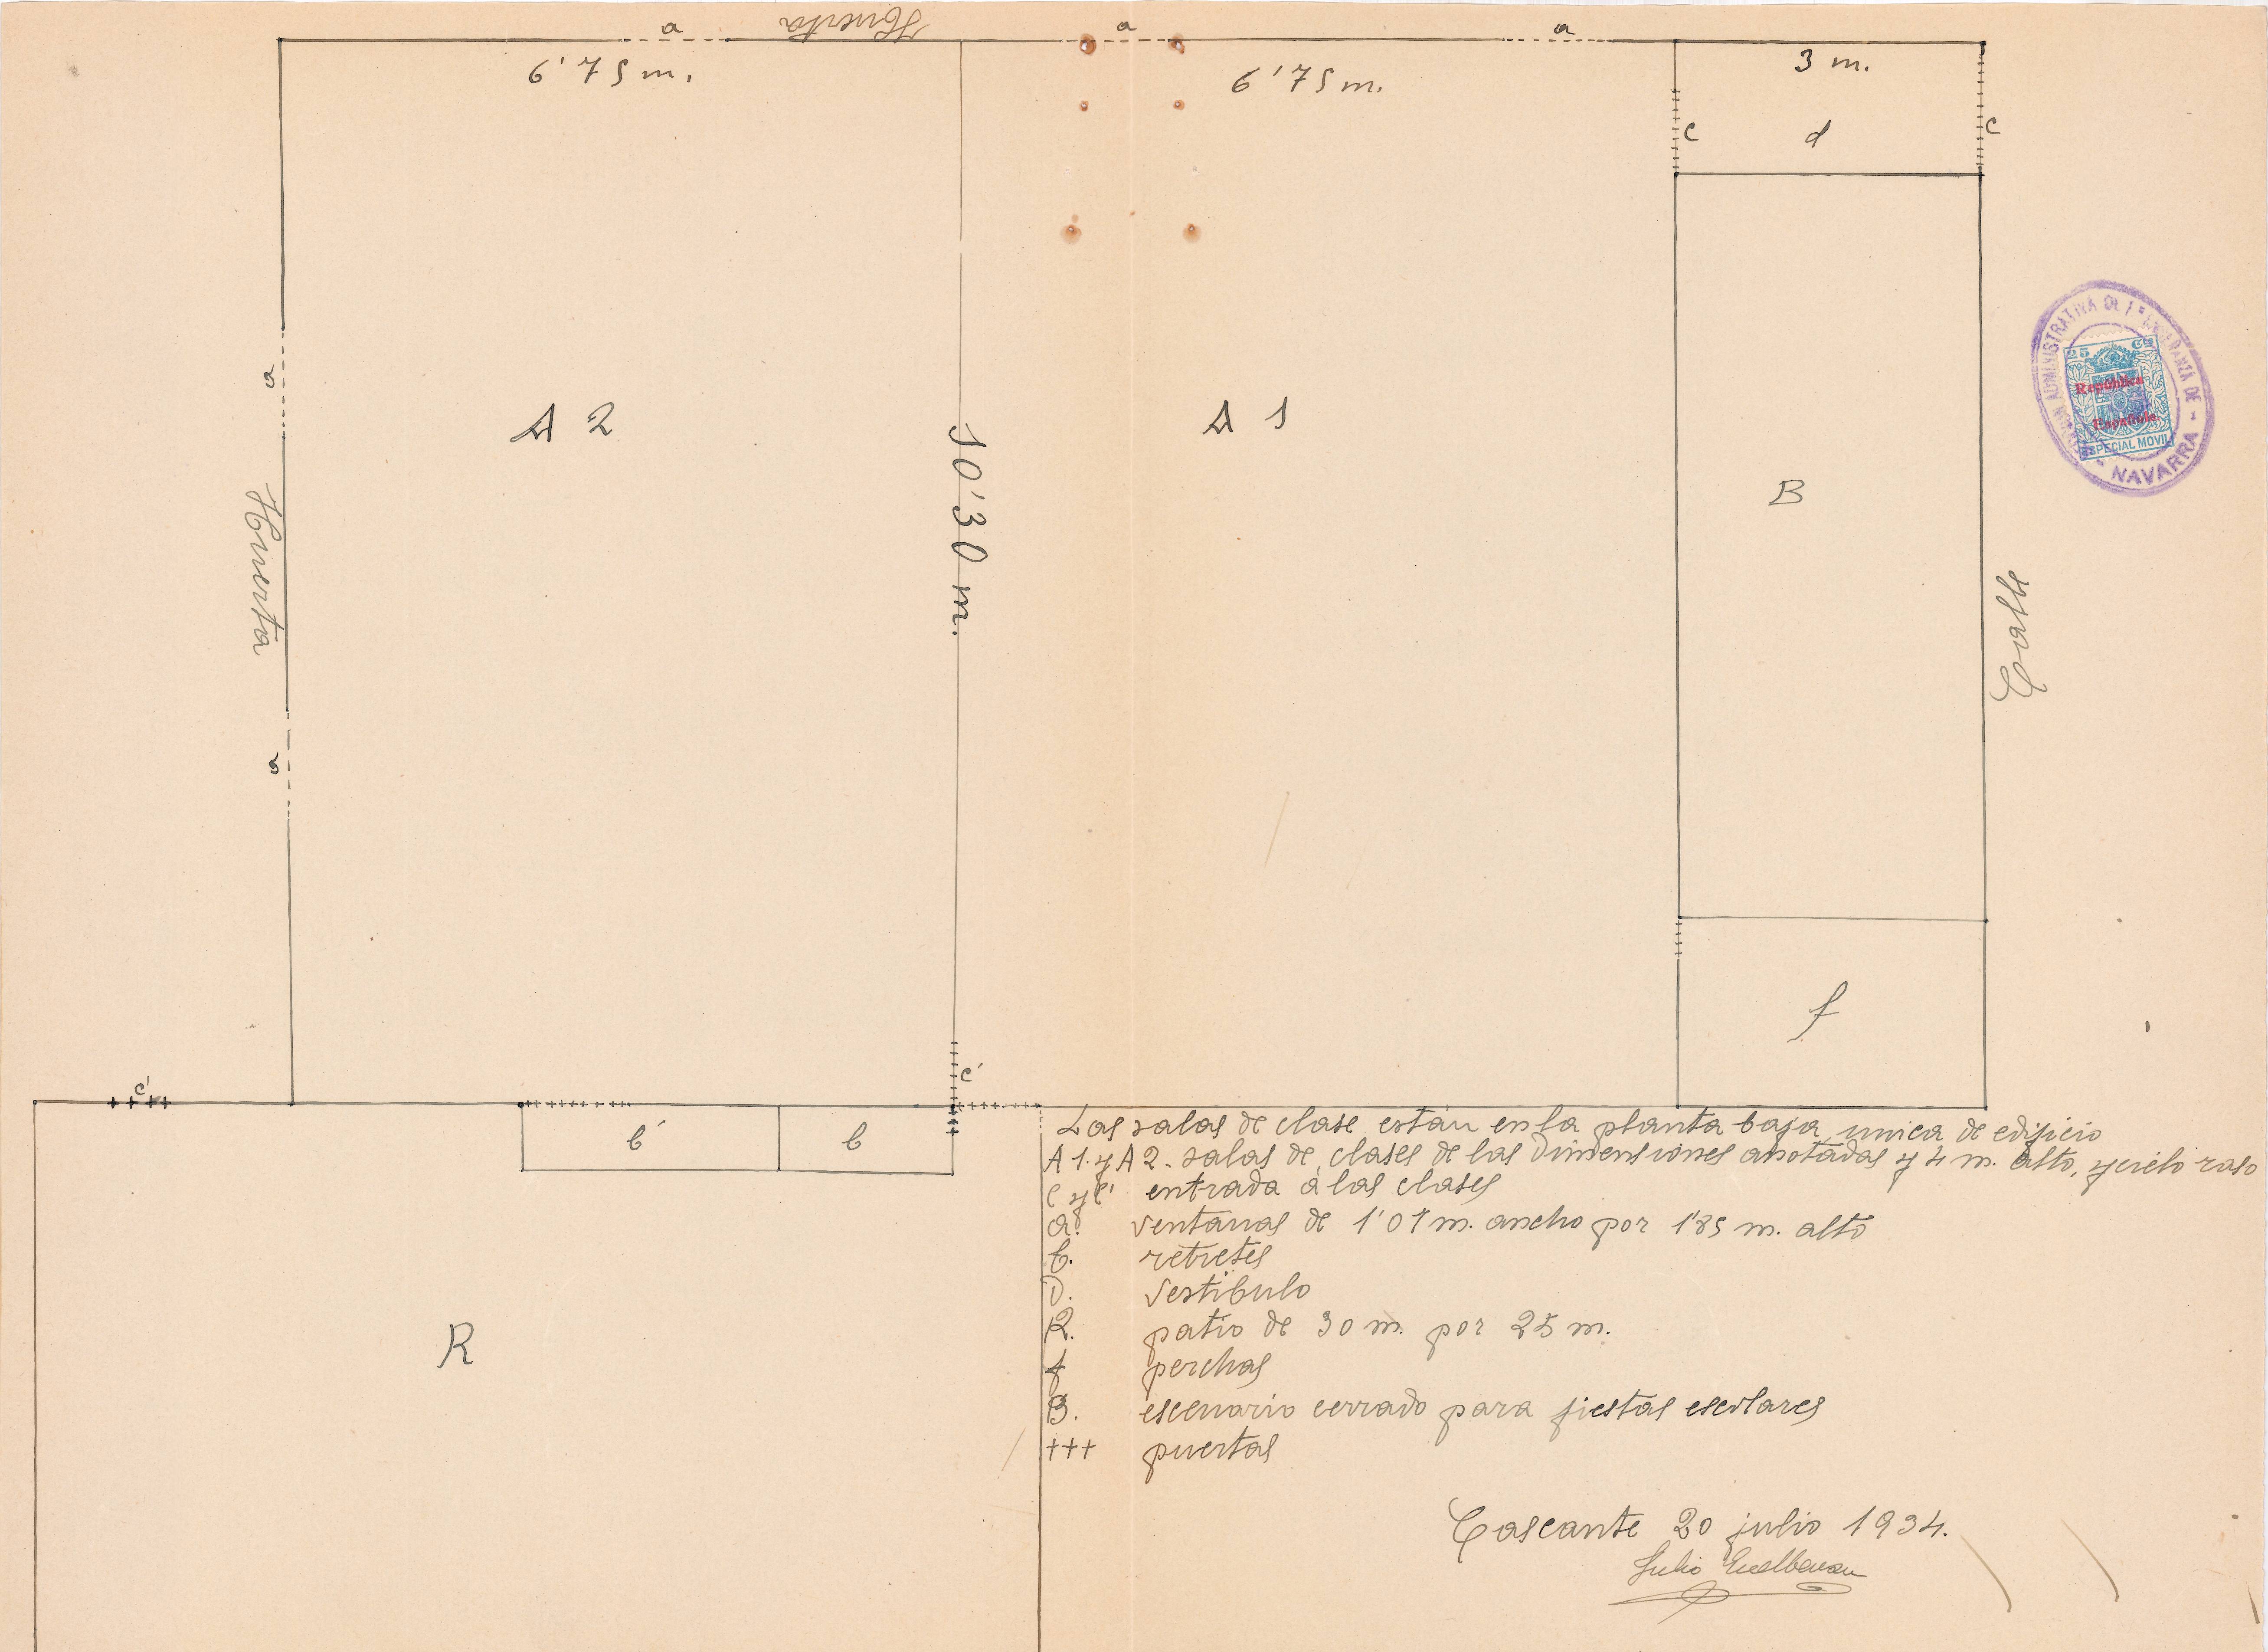 Huerta
a
a
a
6'75 m.
6'75 m.
3 m.
c
d
c
a
A 2
A 1
10'30 m.
B
Huerta
Calle
a
25 Cts
República
Española
ESPECIAL MOVIL
ADMINISTRATIVA DE
DE
- NAVARRA -
f
c'
c'
b'
b
R
Las salas de clase están en la planta baja, unica de edificio
A 1. y A 2. salas de clases de las dimensiones anotadas y 4 m. alto, y cielo raso
C y C' entrada á las clases
a. ventanas de 1'07 m. ancho por 1'85 m. alto
b. retretes
D. vestibulo
R. patio de 30 m. por 25 m.
f perchas
B. escenario cerrado para fiestas escolares
+++ puertas
Cascante 20 julio 1934.
Julio